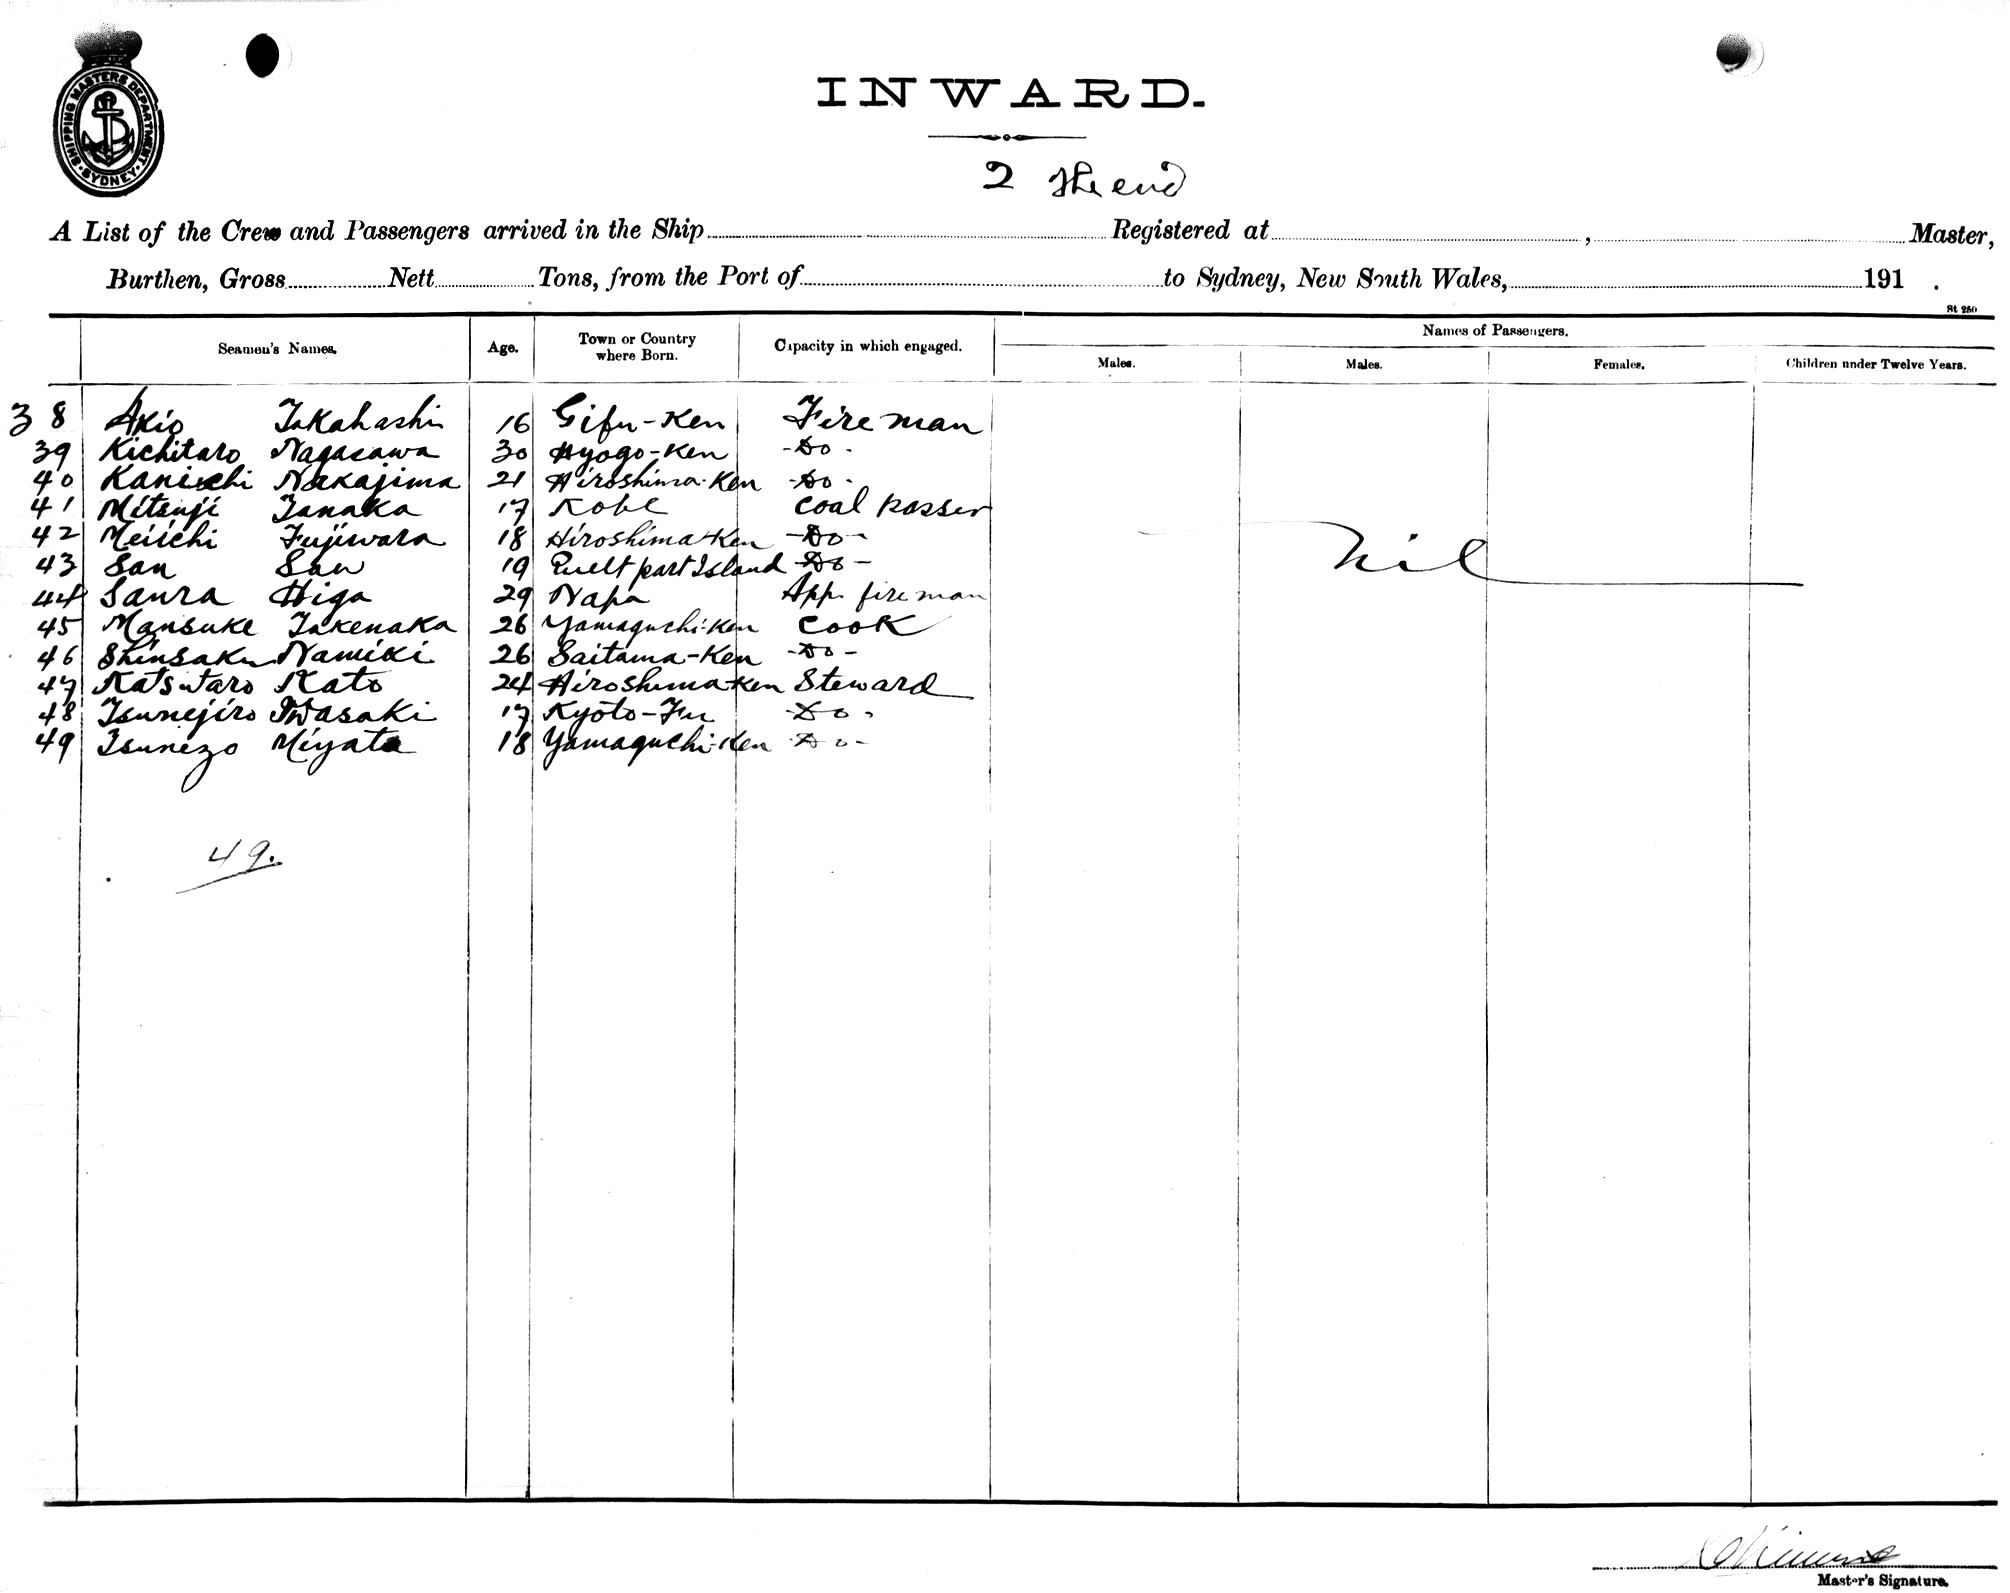 SHIPPING MASTERS DEPARTMENT
SYDNEY
INWARD.
2 The end
A List of the Crew and Passengers arrived in the Ship Registered at , Master,
Burthen, Gross Nett Tons, from the Port of to Sydney, New South Wales, 191 .
St 250
Seamen's Names. Age. Town or Country where Born. Capacity in which engaged. Names of Passengers.
Males. Males. Females. Children under Twelve Years.
38 Akio Takahashi 16 Gifu-Ken Fireman
39 Kichitaro Nagasawa 30 Hyogo-Ken -Do-
40 Kaniichi Nakajima 21 Hiroshima-Ken -Do-
41 Mitsuji Tanaka 17 Kobe Coal passer
42 Meiichi Fujiwara 18 Hiroshima-Ken -Do-
43 San San 19 part Island -Do-
44 Sanra Higa 29 Napa App. fireman
45 Mansuke Takenaka 26 Yamaguchi-Ken Cook
46 Shinsaku Namiki 26 Saitama-Ken -Do-
47 Katsutaro Kato 24 Hiroshima-Ken Steward
48 Tsunejiro Iwasaki 17 Kyoto-Fu -Do-
49 Tsunezo Miyata 18 Yamaguchi-Ken -Do-
Nil
49.
Master's Signature.